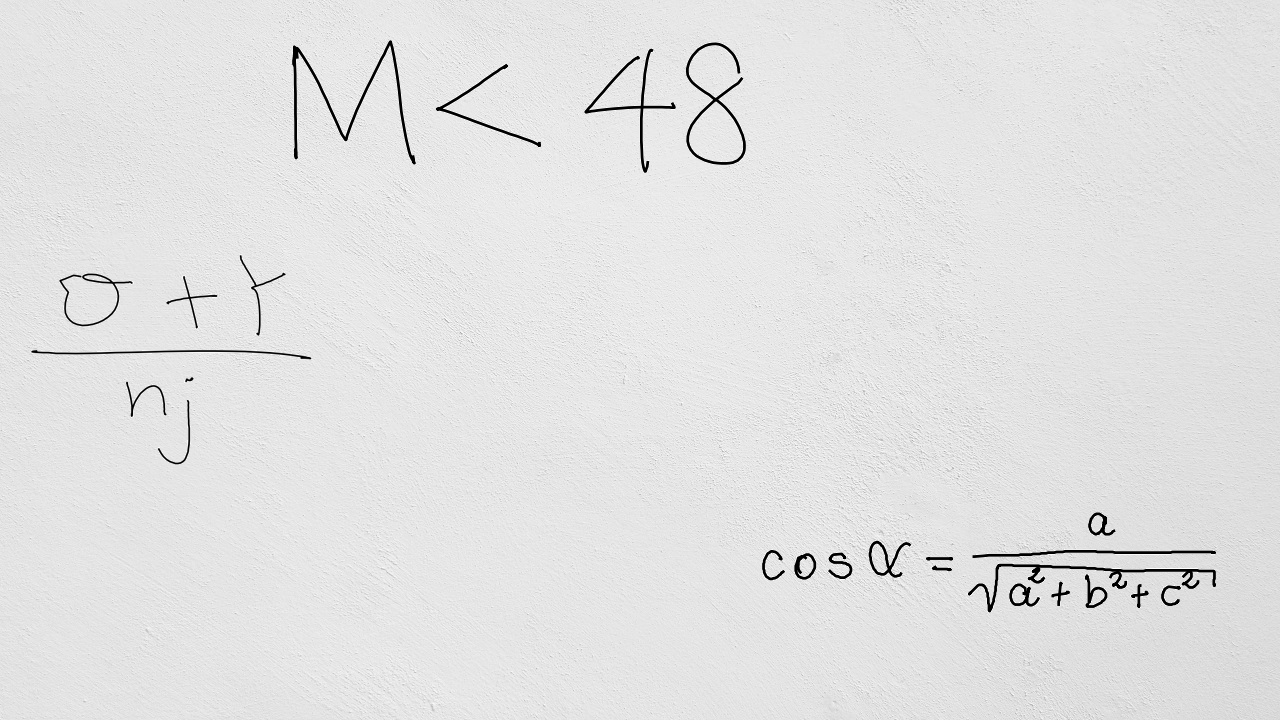 M < 48
\frac{σ + r}{n_j}
cos α = \frac{a}{\sqrt{a^2 + b^2 + c^2}}